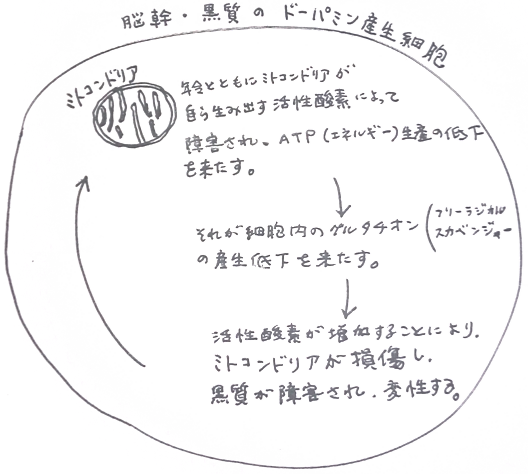 脳幹・黒質のドーパミン産生細胞
ミトコンドリア
年令とともにミトコンドリアが
自ら生み出す活性酸素によって
障害され、ATP(エネルギー)生産の低下
を来たす。
それが細胞内のグルタチオン(フリーラジカル
スカベンジャー
の産生低下を来たす。
活性酸素が増加することにより、
ミトコンドリアが損傷し、
黒質が障害され、変性する。